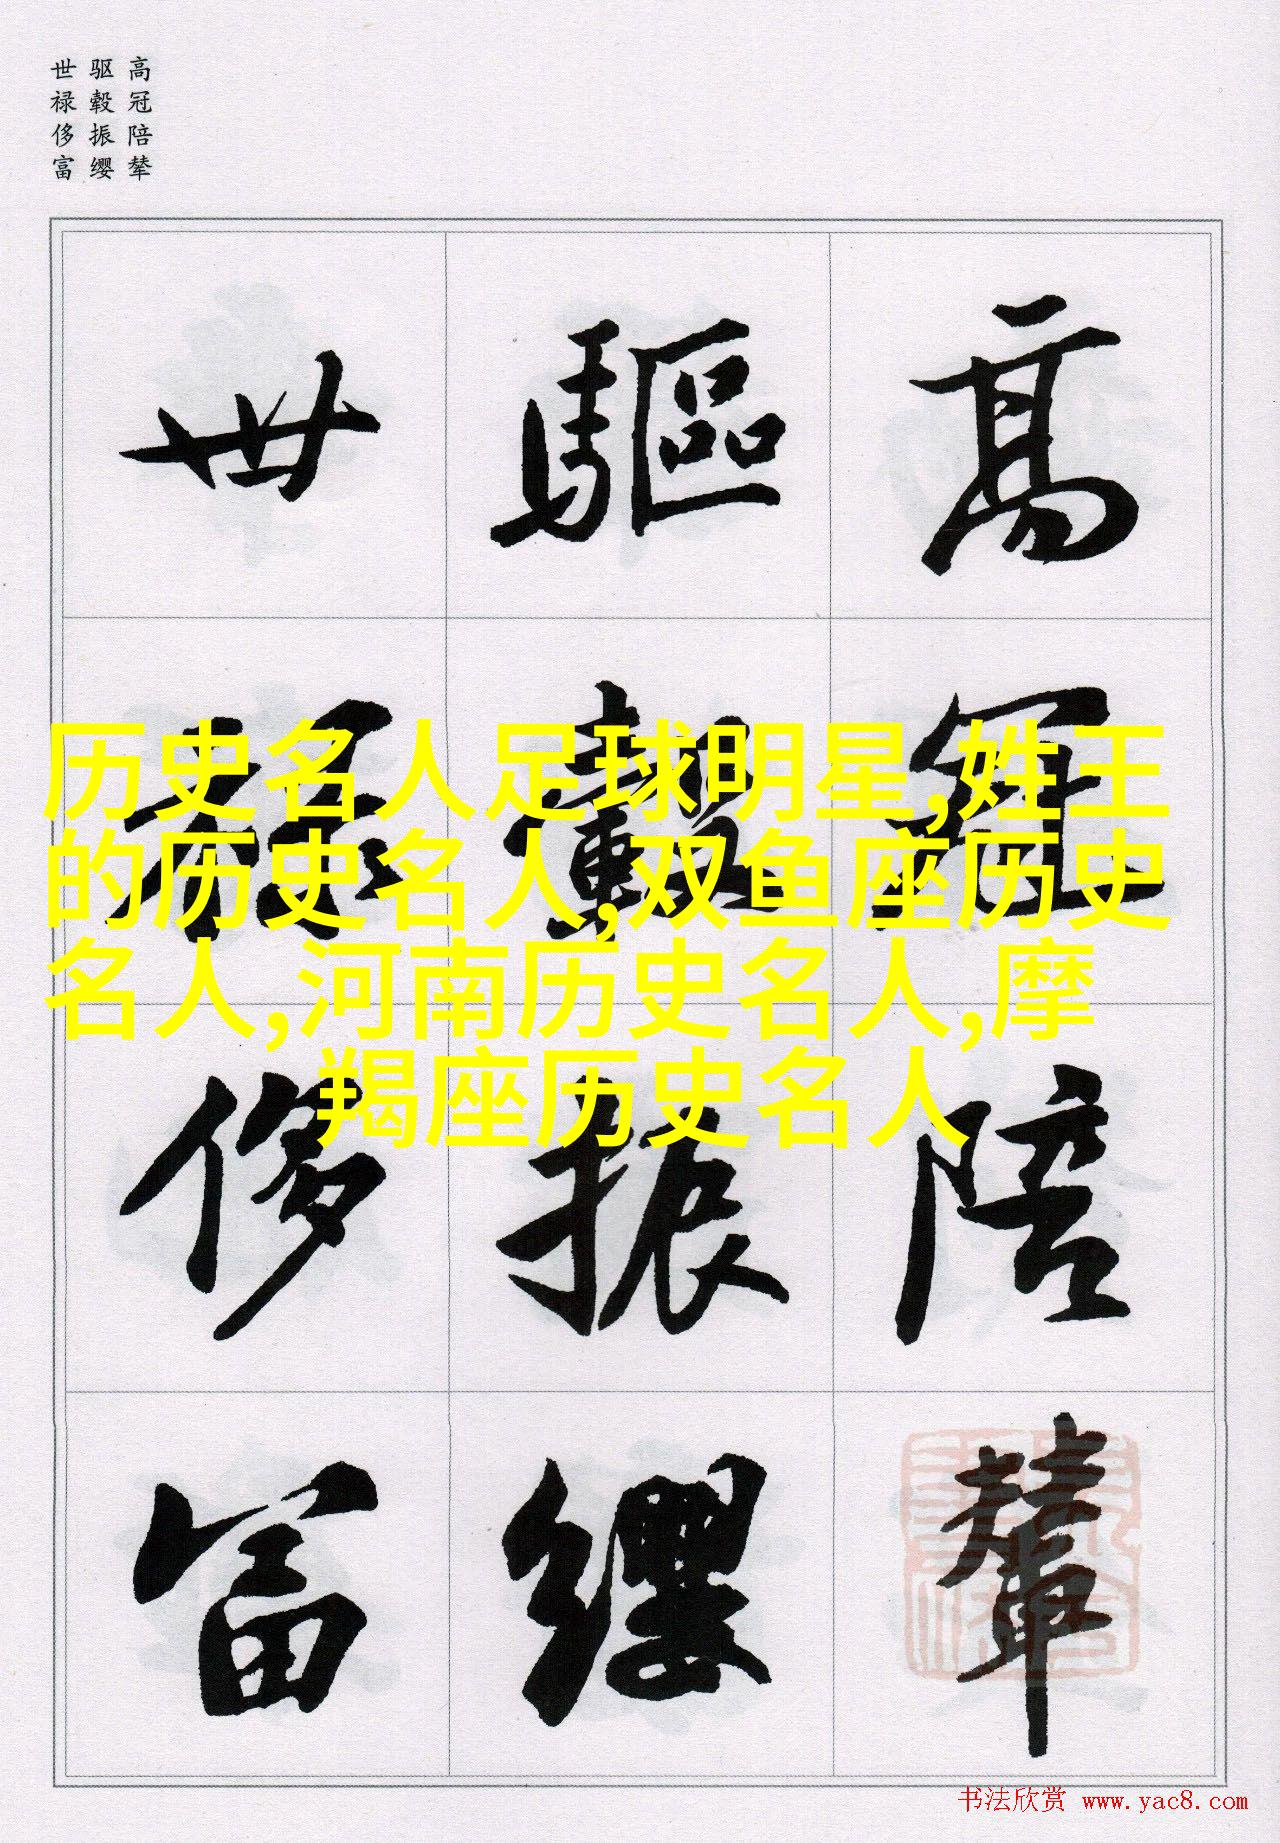 高冠陪辇
驱毂振缨
世禄侈富
高冠陪輦
驅轂振纓
世祿侈富
历史名人足球明星,姓王
的历史名人,双鱼座历史
名人,河南历史名人,摩
羯座历史名人
书法欣赏 www.yac8.com